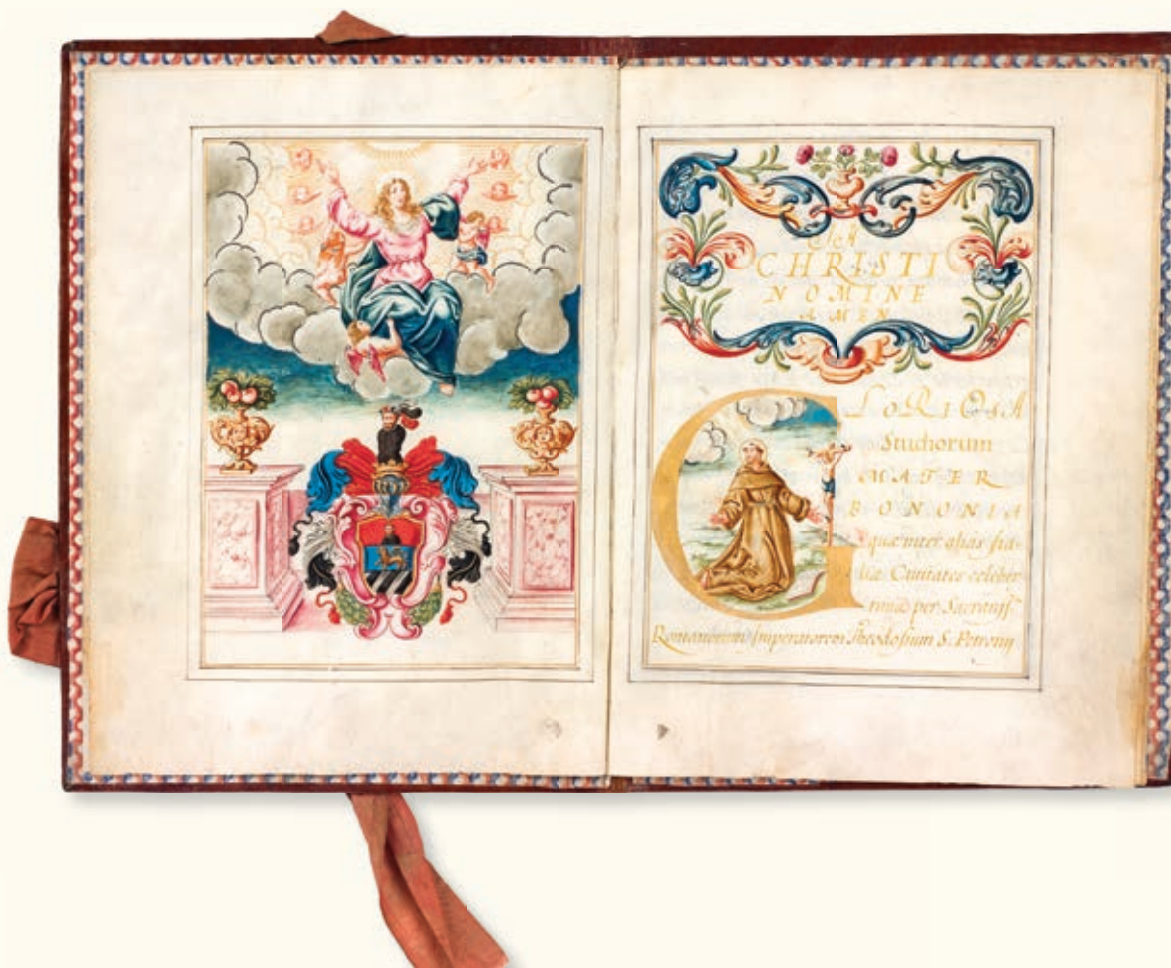 CHRISTI
NOMINE
AMEN
GLORIOSA
Studiorum
MATER
BONONIA
quæ inter alias Ita-
liæ Ciuitates celeber-
rima per Sacratiss.
Romanorum Imperatorem Theodosium S. Petronij